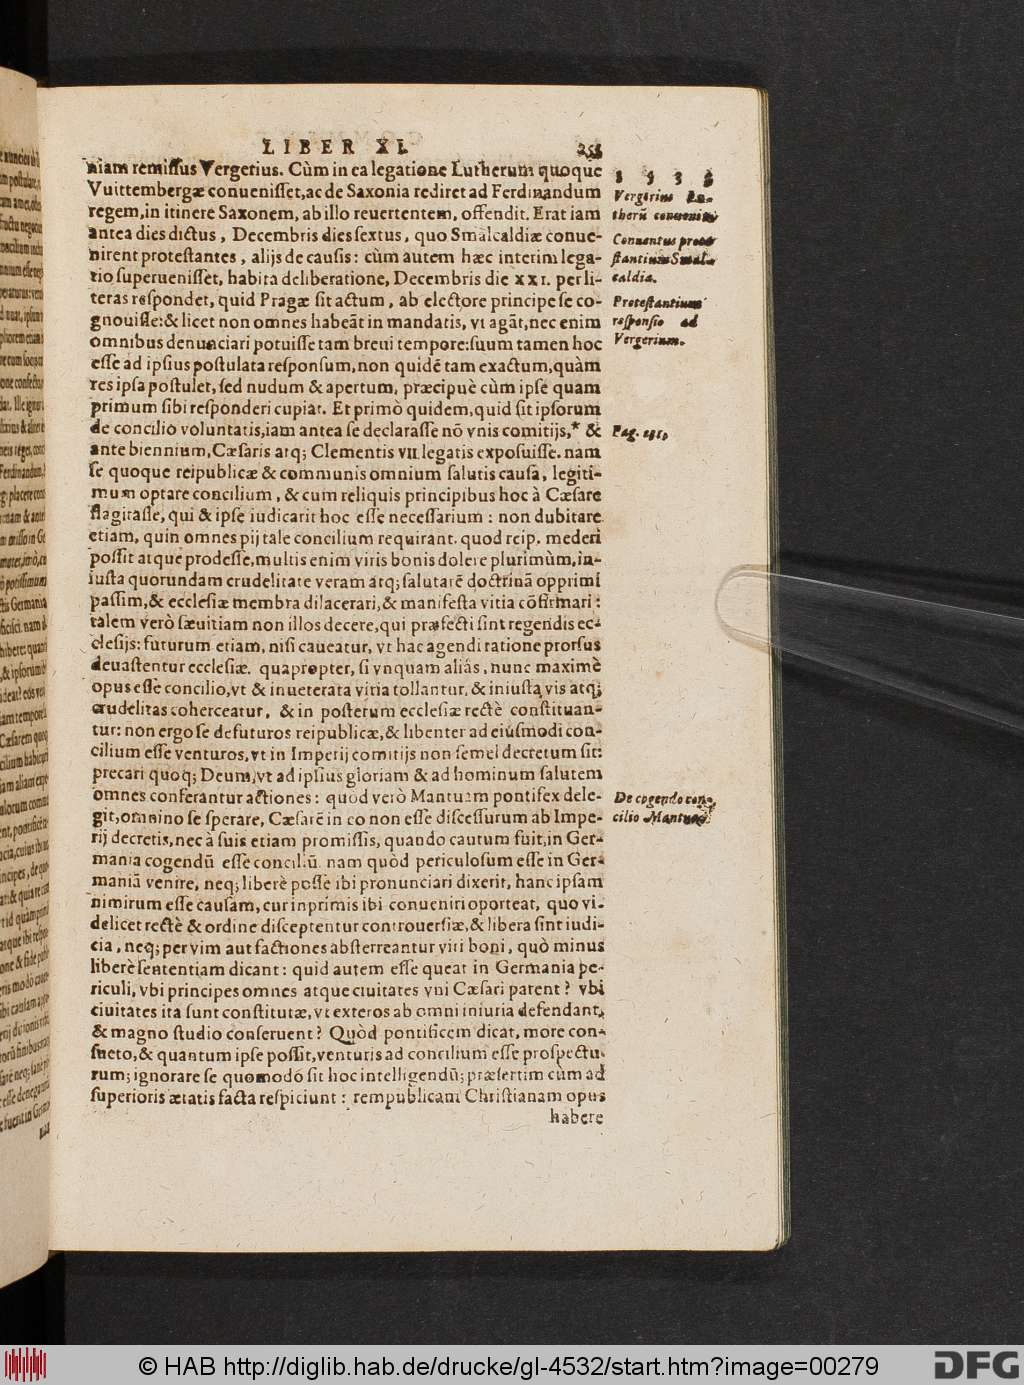 LIBER XI.
niam remissus Vergerius. Cùm in ea legatione Lutherum quoque
Vuittembergæ conuenisset, ac de Saxonia rediret ad Ferdinandum
regem, in itinere Saxonem, ab illo reuertentem, offendit. Erat iam
antea dies dictus, Decembris dies sextus, quo Smalcaldiæ conue-
nirent protestantes, alijs de causis: cùm autem hæc interim lega-
tio superuenisset, habita deliberatione, Decembris die XXI. per li-
teras respondet, quid Pragæ sit actum, ab electore principe se co-
gnouisse: & licet non omnes habeāt in mandatis, vt agāt, nec enim
omnibus denunciari potuisse tam breui tempore: suum tamen hoc
esse ad ipsius postulata responsum, non quidē tam exactum, quàm
res ipsa postulet, sed nudum & apertum, præcipuè cùm ipse quam
primum sibi responderi cupiat. Et primò quidem, quid sit ipsorum
de concilio voluntatis, iam antea se declarasse nō vnis comitijs,* &
ante biennium, Cæsaris atq; Clementis VII. legatis exposuisse. nam
se quoque reipublicæ & communis omnium salutis causa, legiti-
mum optare concilium, & cum reliquis principibus hoc à Cæsare
flagitasse, qui & ipse iudicarit hoc esse necessarium: non dubitare
etiam, quin omnes pij tale concilium requirant. quod reip. mederi
possit atque prodesse, multis enim viris bonis dolere plurimùm, in-
iusta quorundam crudelitate veram atq; salutarē doctrinā opprimi
passim, & ecclesiæ membra dilacerari, & manifesta vitia cōfirmari:
talem verò sæuitiam non illos decere, qui præfecti sint regendis ec-
clesijs: futurum etiam, nisi caueatur, vt hac agendi ratione prorsus
deuastentur ecclesiæ. quapropter, si vnquam aliâs, nunc maximè
opus esse concilio, vt & inueterata vitia tollantur, & iniusta vis atq;
crudelitas coherceatur, & in posterum ecclesiæ rectè constituan-
tur: non ergo se defuturos reipublicæ, & libenter ad eiúsmodi con-
cilium esse venturos, vt in Imperij comitijs non semel decretum sit:
precari quoq; Deum, vt ad ipsius gloriam & ad hominum salutem
omnes conferantur actiones: quòd verò Mantuam pontifex dele-
git, omnino se sperare, Cæsarē in eo non esse discessurum ab Impe-
rij decretis, nec à suis etiam promissis, quando cautum fuit, in Ger-
mania cogendū esse conciliū. nam quòd periculosum esse in Ger-
maniā venire, neq; liberè posse ibi pronunciari dixerit, hanc ipsam
nimirum esse causam, cur inprimis ibi conueniri oporteat, quo vi-
delicet rectè & ordine disceptentur controuersiæ, & libera sint iudi-
cia, neq; per vim aut factiones absterreantur viri boni, quò minus
liberè sententiam dicant: quid autem esse queat in Germania pe-
riculi, vbi principes omnes atque ciuitates vni Cæsari parent? vbi
ciuitates ita sunt constitutæ, vt exteros ab omni iniuria defendant,
& magno studio conseruent? Quòd pontificem dicat, more con-
sueto, & quantum ipse possit, venturis ad concilium esse prospectu-
rum; ignorare se quomodó sit hoc intelligendū; præsertim cùm ad
superioris ætatis facta respiciunt: rempublicam Christianam opus
habere
Vergerius Lu-
therū conuenit.
Conuentus prote-
stantium Smal-
caldiæ.
Protestantium
responsio ad
Vergerium.
De cogendo con-
cilio Mantuæ.
© HAB http://diglib.hab.de/drucke/gl-4532/start.htm?image=00279
DFG